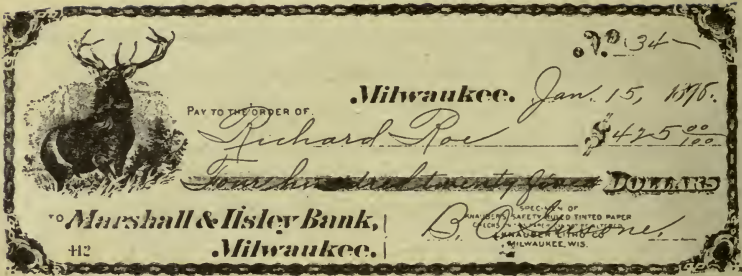 No. 34
Milwaukee. Jan. 15, 1898.
PAY TO THE ORDER OF
Richard Roe $425 00/100
Four hundred twenty five DOLLARS
TO Marshall & Ilsley Bank,
Milwaukee.
442
SPECIMEN OF
KNAUBER'S SAFETY RULED TINTED PAPER
CHECKS
KNAUBER LITHO CO
MILWAUKEE, WIS.
B. O.